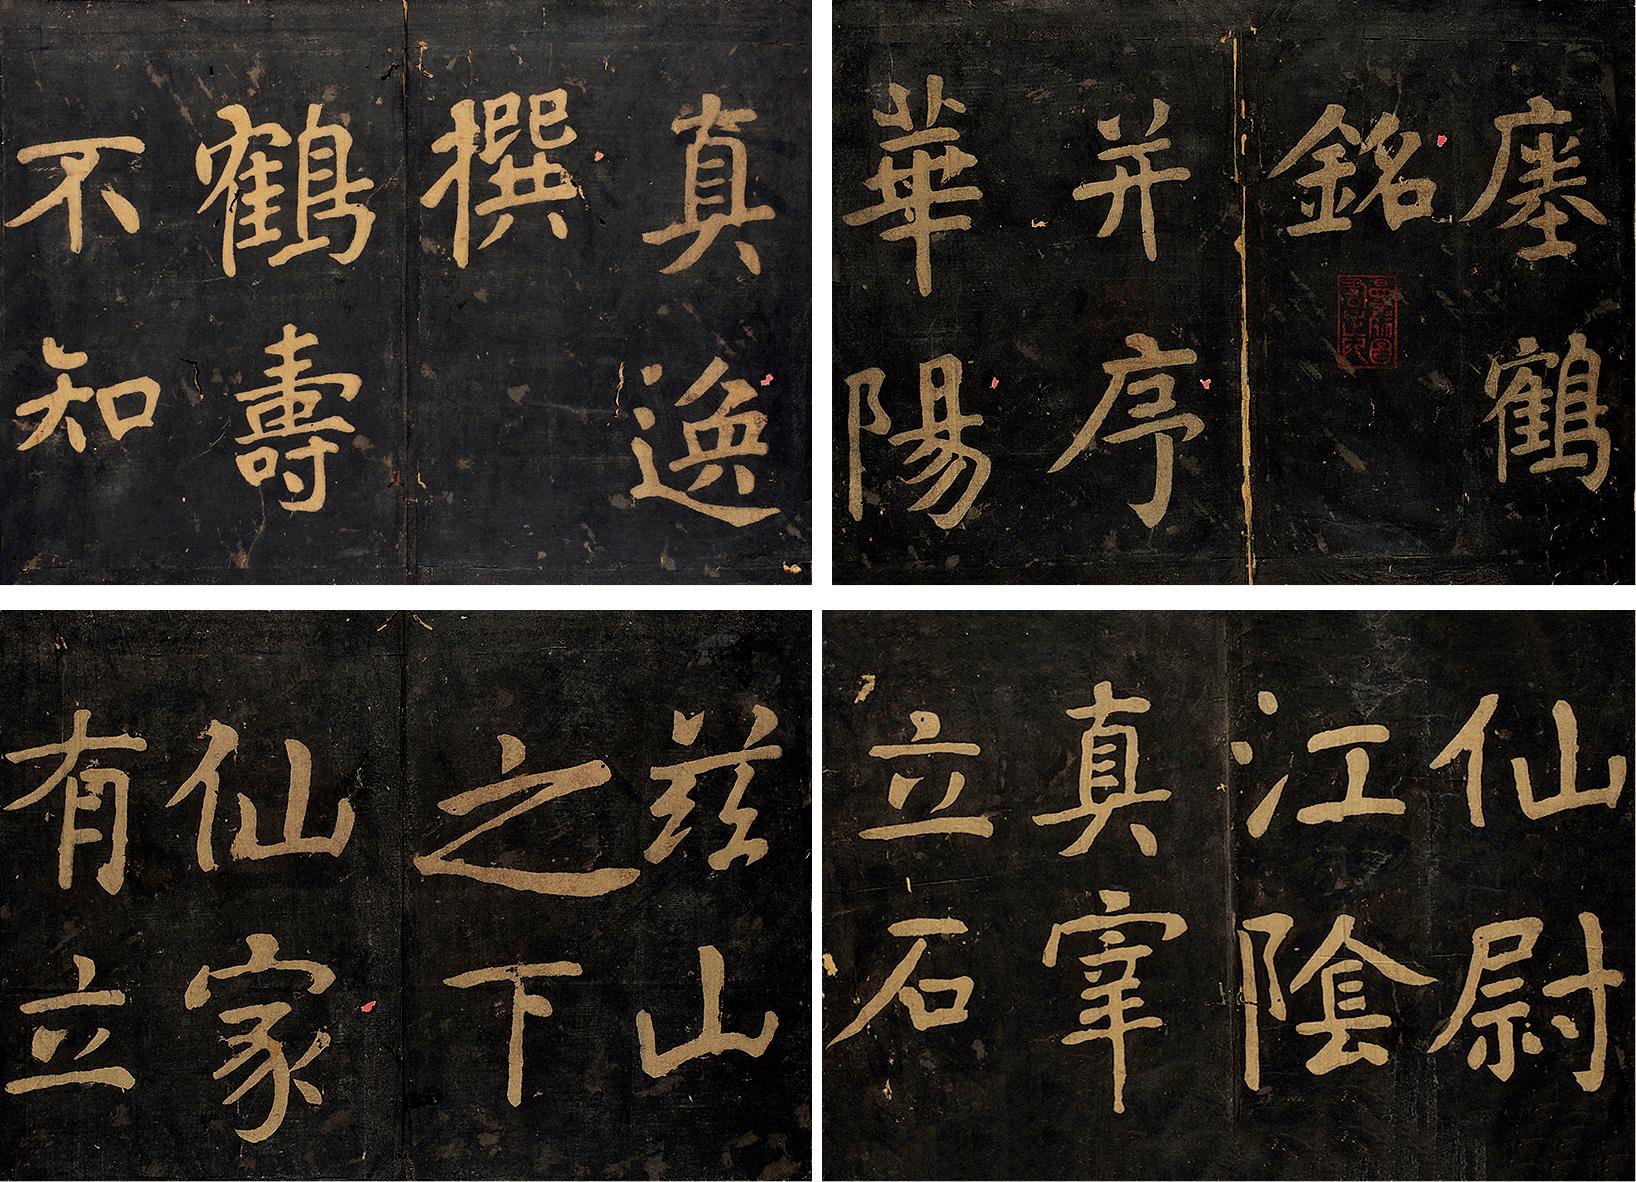 瘞鶴
銘
并序
華陽
真逸
撰
鶴壽
不知
仙尉
江陰
真宰
立石
茲山
之下
仙家
有立